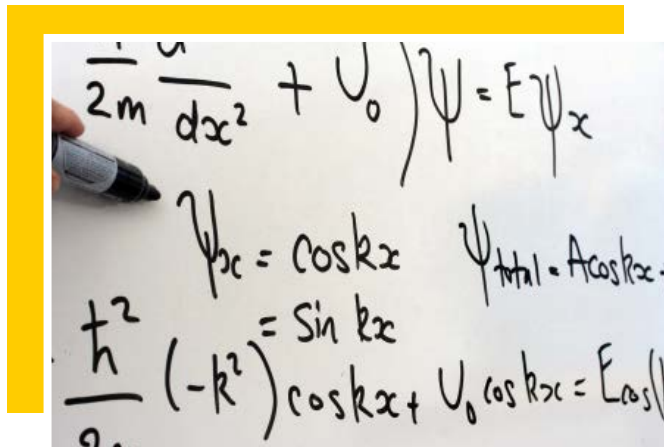 2m dx² + U₀) Ψ = EΨx
Ψx = coskx Ψtotal = Acoskx
= sin kx
ħ² (-k²) coskx + U₀ coskx = Ecos(